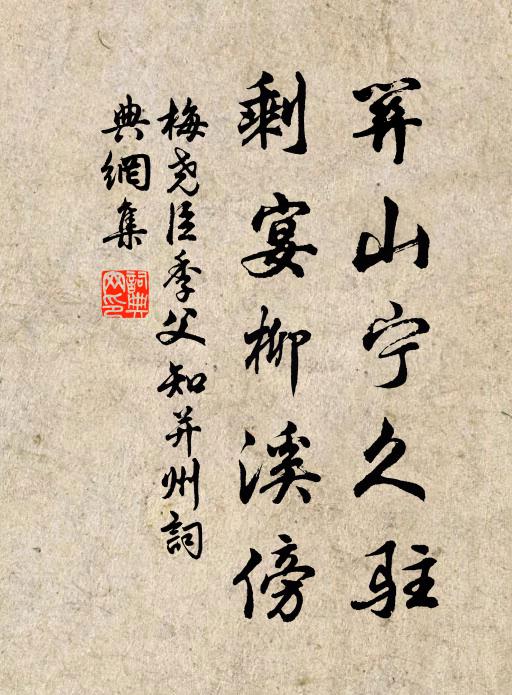 笄山宁久驻
剩宴柳溪傍
梅尧臣季父知并州詞
典網集
詞典
网印